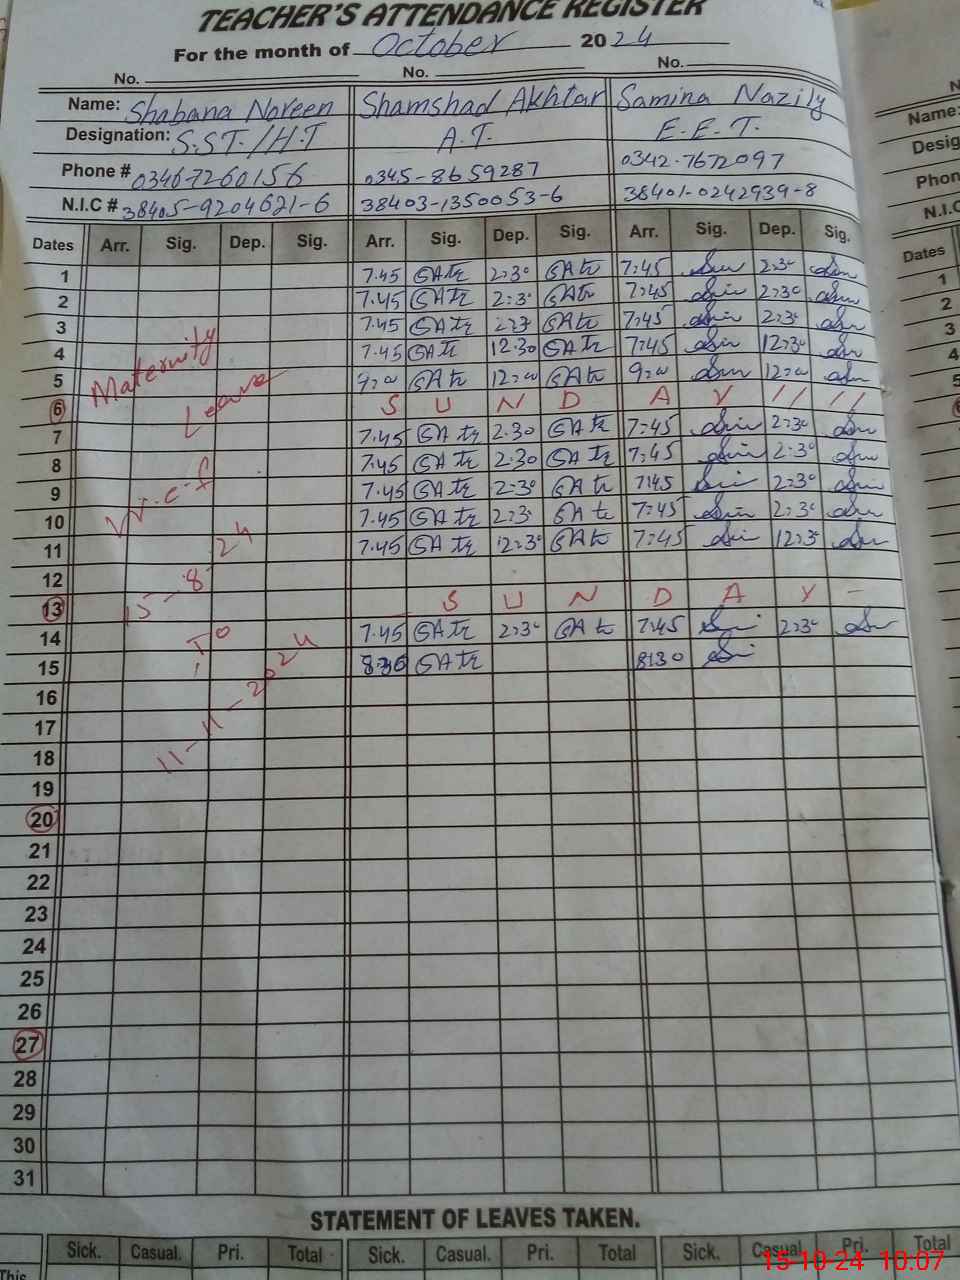 TEACHER'S ATTENDANCE REGISTER
For the month of October 2024
No. No. No.
Name: Shabana Noreen Shamshad Akhtar Samina Nazily
Designation: S.ST./H.T A.T. E.E.T.
Phone # 03467260156 0345-8659287 0342-7672097
N.I.C # 38405-9204621-6 38403-1350053-6 38401-0242939-8
Dates Arr. Sig. Dep. Sig. Arr. Sig. Dep. Sig. Arr. Sig. Dep. Sig.
1 7.45 2:30 7:45 2:30
2 7.45 2:30 7:45 2:30
3 7.45 2:30 7:45 2:30
4 7.45 12.30 7:45 12:30
5 9:00 12:00 9:00 12:00
6 S U N D A Y // //
7 7.45 2.30 7:45 2:30
8 7.45 2.30 7:45 2:30
9 7.45 2:30 7:45 2:30
10 7.45 2:30 7:45 2:30
11 7.45 12:30 7:45 12:30
12
13 S U N D A Y -
14 7.45 2:30 7:45 2:30
15 8:30 8:30
16
17
18
19
20
21
22
23
24
25
26
27
28
29
30
31
Maternity
Leave
w.e.f
15-8-24
To
11-11-2024
STATEMENT OF LEAVES TAKEN.
Sick. Casual. Pri. Total Sick. Casual. Pri. Total Sick. Casual. Pri. Total
This
Name:
Desig
Phon
N.I.C
Dates
1
2
3
4
5
15-10-24 10:07